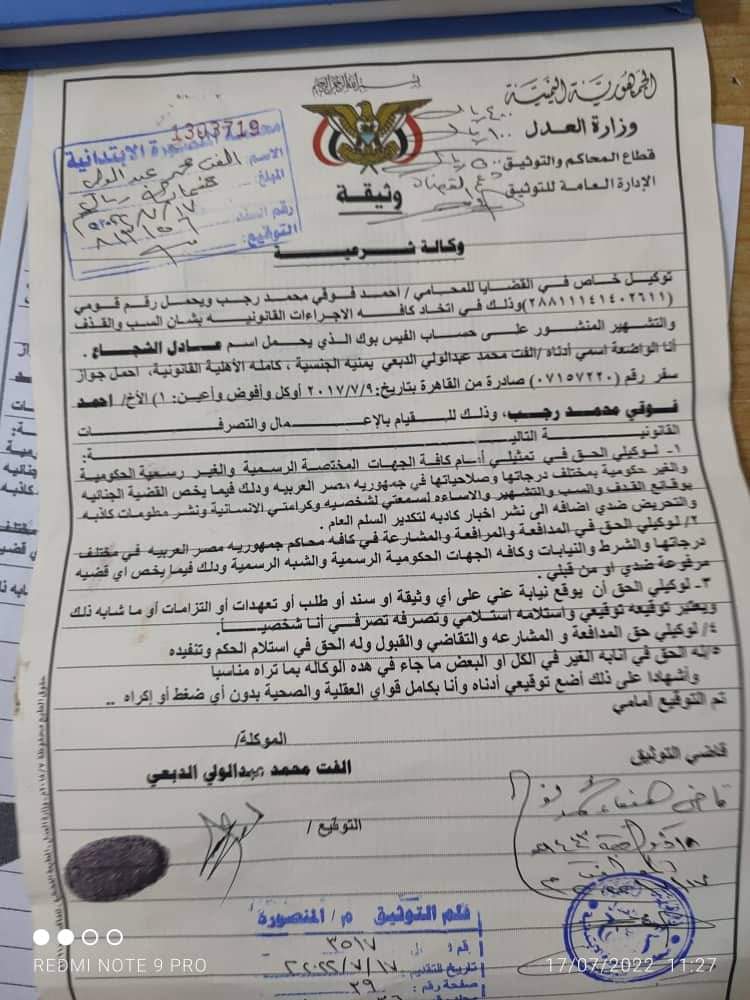 الجمهورية اليمنية
وزارة العدل
قطاع المحاكم والتوثيق
الإدارة العامة للتوثيق
وثيقة
1303719
الابتدائية
الاسم:
المبلغ
رقم السند
التوقيع:
وكالة شرعية
توكيل خاص في القضايا للمحامي / احمد فوقي محمد رجب ويحمل رقم قومي
(٢٨٨١١١٤١٤٠٢٦١١) وذلك في اتخاد كافه الاجراءات القانونيه بشان السب والقذف
والتشهير المنشور على حساب الفيس بوك الذي يحمل اسم عادل الشجاع .
أنا الواضعة اسمي أدناه /الفت محمد عبدالولي الدبعي يمنيه الجنسية ، كامله الأهلية القانونية، احمل جواز
سفر رقم (٠٧١٥٧٢٢٠) صادرة من القاهرة بتاريخ: ٢٠١٧/٧/٩ أوكل وأفوض وأعين: ١) الأخ/ احمد
فوقي محمد رجب، وذلك للقيام بالإعمال والتصرفات
القانونية التالية:
١- لوكيلي الحق في تمثيلي أمام كافة الجهات المختصة الرسمية والغير رسمية الحكومية
والغير حكومية بمختلف درجاتها وصلاحياتها في جمهوريه مصر العربيه ودلك فيما يخص القضية الجنائيه
بوقائع القدف والسب والتشهير والاساءه لسمعتي لشخصيه وكرامتي الانسانية ونشر معلومات كاذبه
والتحريض ضدي اضافه الى نشر اخبار كاذبه لتكدير السلم العام .
٢/ لوكيلي الحق في المدافعة والمرافعة والمشارعة في كافه محاكم جمهوريه مصر العربيه في مختلف
درجاتها والشرط والنيابات وكافه الجهات الحكومية الرسمية والشبه الرسمية ودلك فيما يخص اي قضيه
مرفوعة ضدي أو من قبلي .
٣- لوكيلي الحق أن يوقع نيابة عني على أي وثيقة او سند أو طلب أو تعهدات أو التزامات أو ما شابه ذلك
ويعتبر توقيعه توقيعي واستلامه استلامي وتصرفه تصرفي أنا شخصياً.
٤/ لوكيلي حق المدافعة و المشارعه والتقاضي والقبول وله الحق في استلام الحكم وتنفيده
٥/له الحق في انابه الغير في الكل أو البعض ما جاء في هده الوكاله بما تراه مناسبا
وأشهادا على ذلك أضع توقيعي أدناه وأنا بكامل قواي العقلية والصحية بدون أي ضغط أو إكراه ..
تم التوقيع أمامي
الموكلة/
قاضي التوثيق
الفت محمد عبدالولي الدبعي
التوقيع /
قلم التوثيق م/ المنصورة
٣٥١٧
تاريخ التقديم ٢٠٢٢/٧/١٧
صفحة رقم: ٣٩
REDMI NOTE 9 PRO
17/07/2022 11:27